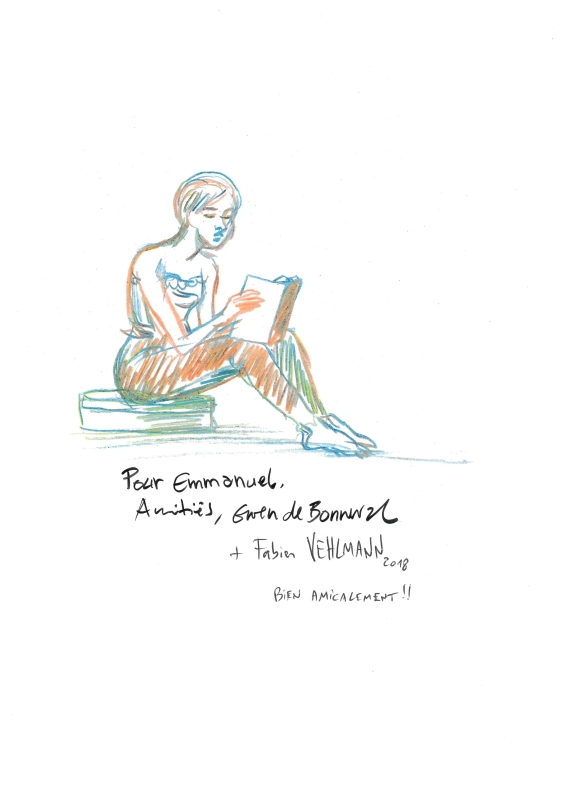 Pour Emmanuel.
Amitiés, Gwen de Bonneval
+ Fabien VEHLMANN
2018
BIEN AMICALEMENT !!